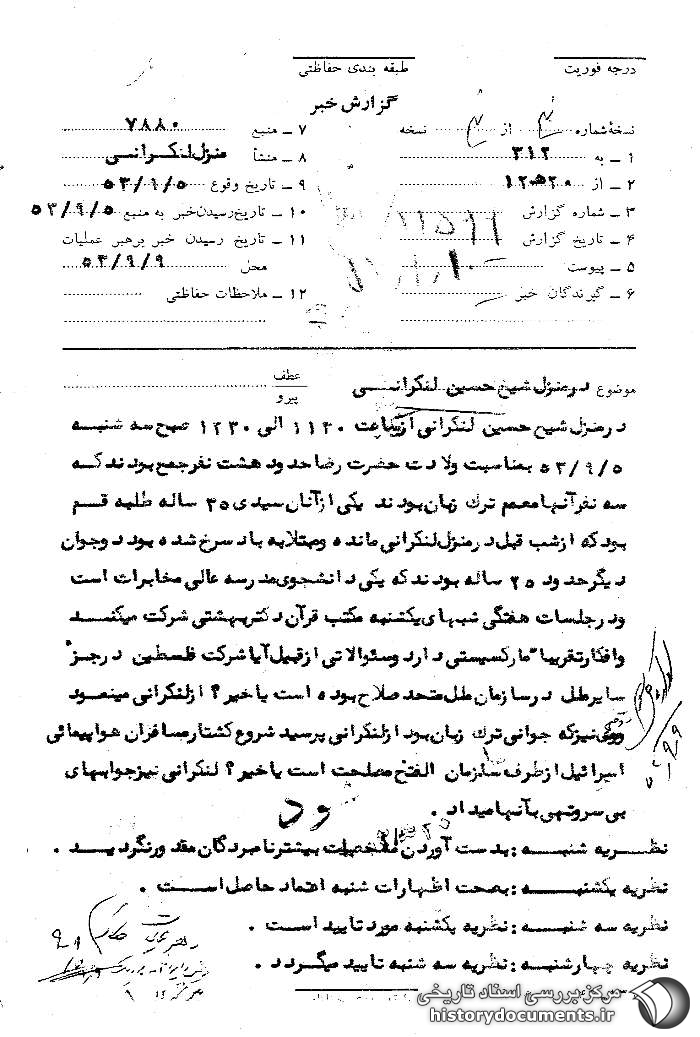 درجه فوریت
طبقه بندی حفاظتی
گزارش خبر
نسخهٔ شماره از نسخه
۱ ـ به ۳۱۲
۲ ـ از ۲۰ه۱۲
۳ ـ شماره گزارش
۴ ـ تاریخ گزارش
۵ ـ پیوست
۶ ـ گیرندگان خبر
۷ ـ منبع ۷۸۸۰
۸ ـ منشأ منزل لنکرانی
۹ ـ تاریخ وقوع ۵۳/۹/۵
۱۰ ـ تاریخ رسیدن خبر به منبع ۵۳/۹/۵
۱۱ ـ تاریخ رسیدن خبر برهبر عملیات
محل ۵۳/۹/۹
۱۲ ـ ملاحظات حفاظتی
موضوع درمنزل شیخ حسین لنکرانی
عطف
پیرو
درمنزل شیخ حسین لنکرانی ازساعت ۱۱۳۰ الی ۱۲۳۰ صبح سه شنبه
۵۳/۹/۵ بمناسبت ولادت حضرت رضا حدود هشت نفر جمع بودند که
سه نفر آنها معمم ترک زبان بودند یکی ازآنان سیدی ۳۵ ساله طلبه قم
بود که ازشب قبل درمنزل لنکرانی مانده ومبتلابه باد سرخ شده بود دوجوان
دیگر حدود ۲۵ ساله بودند که یکی دانشجوی مدرسه عالی مخابرات است
ودرجلسات هفتگی شبهای یکشنبه مکتب قرآن دکتر بهشتی شرکت میکند
وافکار تقریبا" مارکسیستی دارد وسئوالاتی ازقبیل آیا شرکت فلسطین درجزء
سایرملل درسازمان ملل متحد صلاح بوده است یاخیر ؟ ازلنکرانی مینمود
نیز که جوانی ترک زبان بود ازلنکرانی پرسید شروع کشتار مسافران هواپیمائی
اسرائیل ازطرف سازمان الفتح مصلحت است یاخیر ؟ لنکرانی نیز جوابهای
بی سروتهی بآنها میداد .
نظریه شنبه : بدست آوردن مشخصات بیشتر نامبردگان مقدور نگردید .
نظریه یکشنبه : بصحت اظهارات شنبه اعتماد حاصل است .
نظریه سه شنبه : نظریه یکشنبه مورد تایید است .
نظریه چهارشنبه : نظریه سه شنبه تایید میگردد .
مرکز بررسی اسناد تاریخی
historydocuments.ir